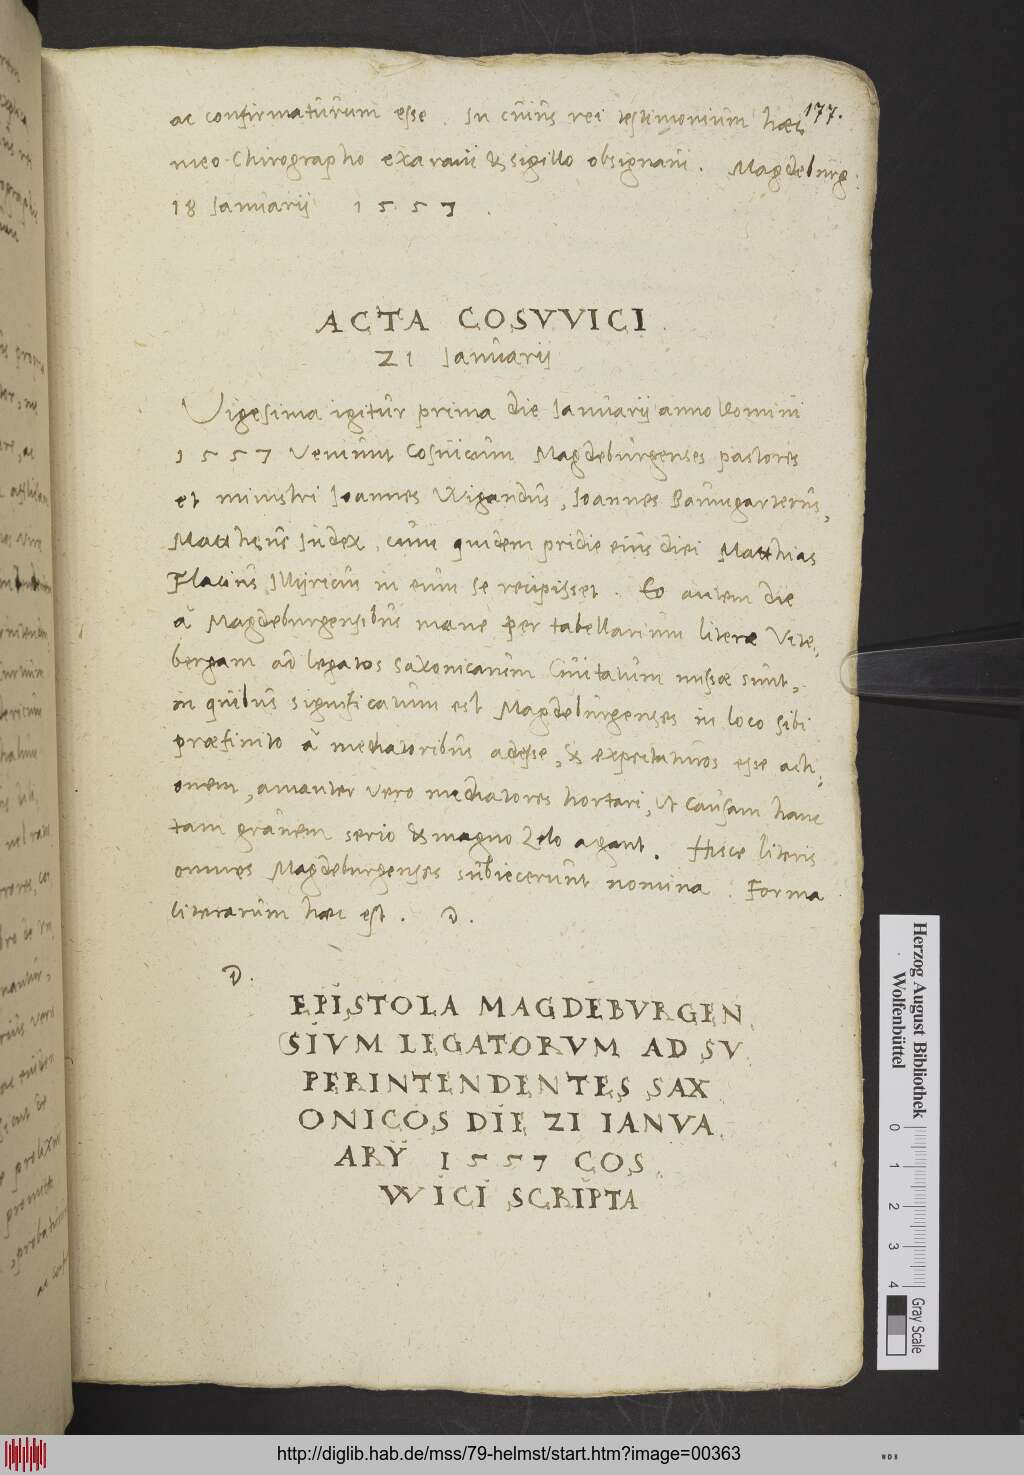 177.
ac confirmaturum esse. In cuius rei testimonium hæc
meo Chirographo exaraui & sigillo obsignaui. Magdeburg:
18 Ianuarij 1557.
ACTA COSVVICI
21 Ianuarij
Vigesima igitur prima die Ianuarij anno Domini
1557 Veniunt Cosuicum Magdeburgenses pastores
et ministri Ioannes Wigandus, Ioannes Baumgarterus,
Matthęus Iudex, cum quidem pridie eius diei Matthias
Flacius Illyricus in eum se recipisset. Eo autem die
à Magdeburgensibus mane per tabellarium literæ Vite-
bergam ad legatos saxonicarum Ciuitatum missæ sunt,
in quibus significatum est Magdeburgenses in loco sibi
præfinito à mediatoribus adesse, & expectaturos esse acti-
onem, amanter vero mediatores hortari, vt causam hanc
tam grauem serio & magno Zelo agant. Hisce literis
omnes Magdeburgenses subiecerunt nomina. Forma
literarum hæc est. D.
D.
EPISTOLA MAGDEBVRGEN
SIVM LEGATORVM AD SV
PERINTENDENTES SAX
ONICOS DIE 21 IANVA
ARY 1557 COS
WICI SCRIPTA
Herzog August Bibliothek
Wolfenbüttel
0 1 2 3 4
Gray Scale
http://diglib.hab.de/mss/79-helmst/start.htm?image=00363
WDB